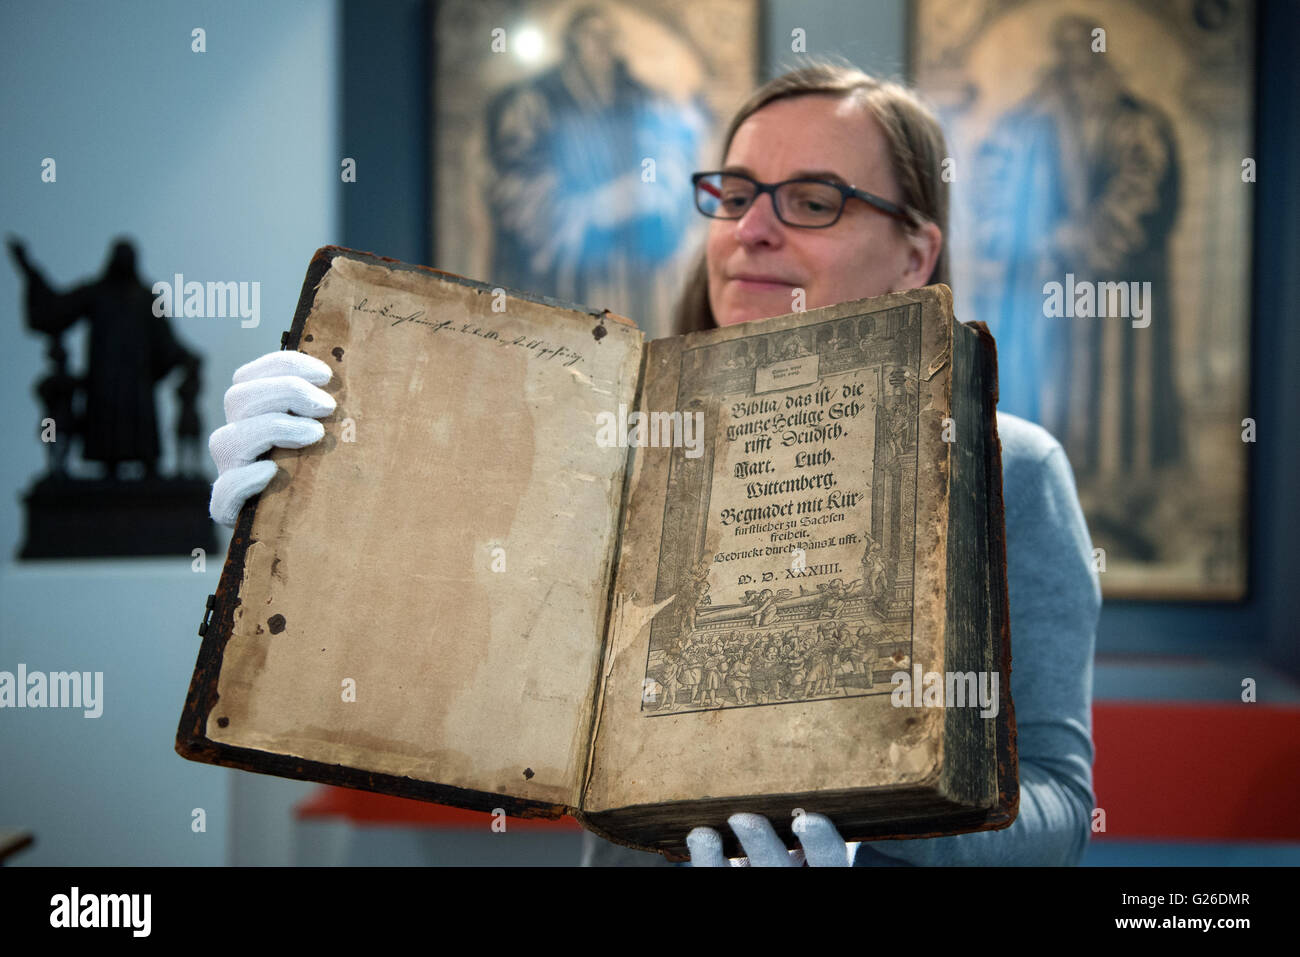 Biblia / das ist / die
gantze Heilige Sch-
rifft Deudsch.
Mart. Luth.
Wittemberg.
Begnadet mit Kür-
furstlicher zu Sachsen
freiheit.
Gedruckt durch Hans Lufft.
M. D. XXXIIII.
a alamy stock photo
alamy
Image ID: G26DMR
www.alamy.com